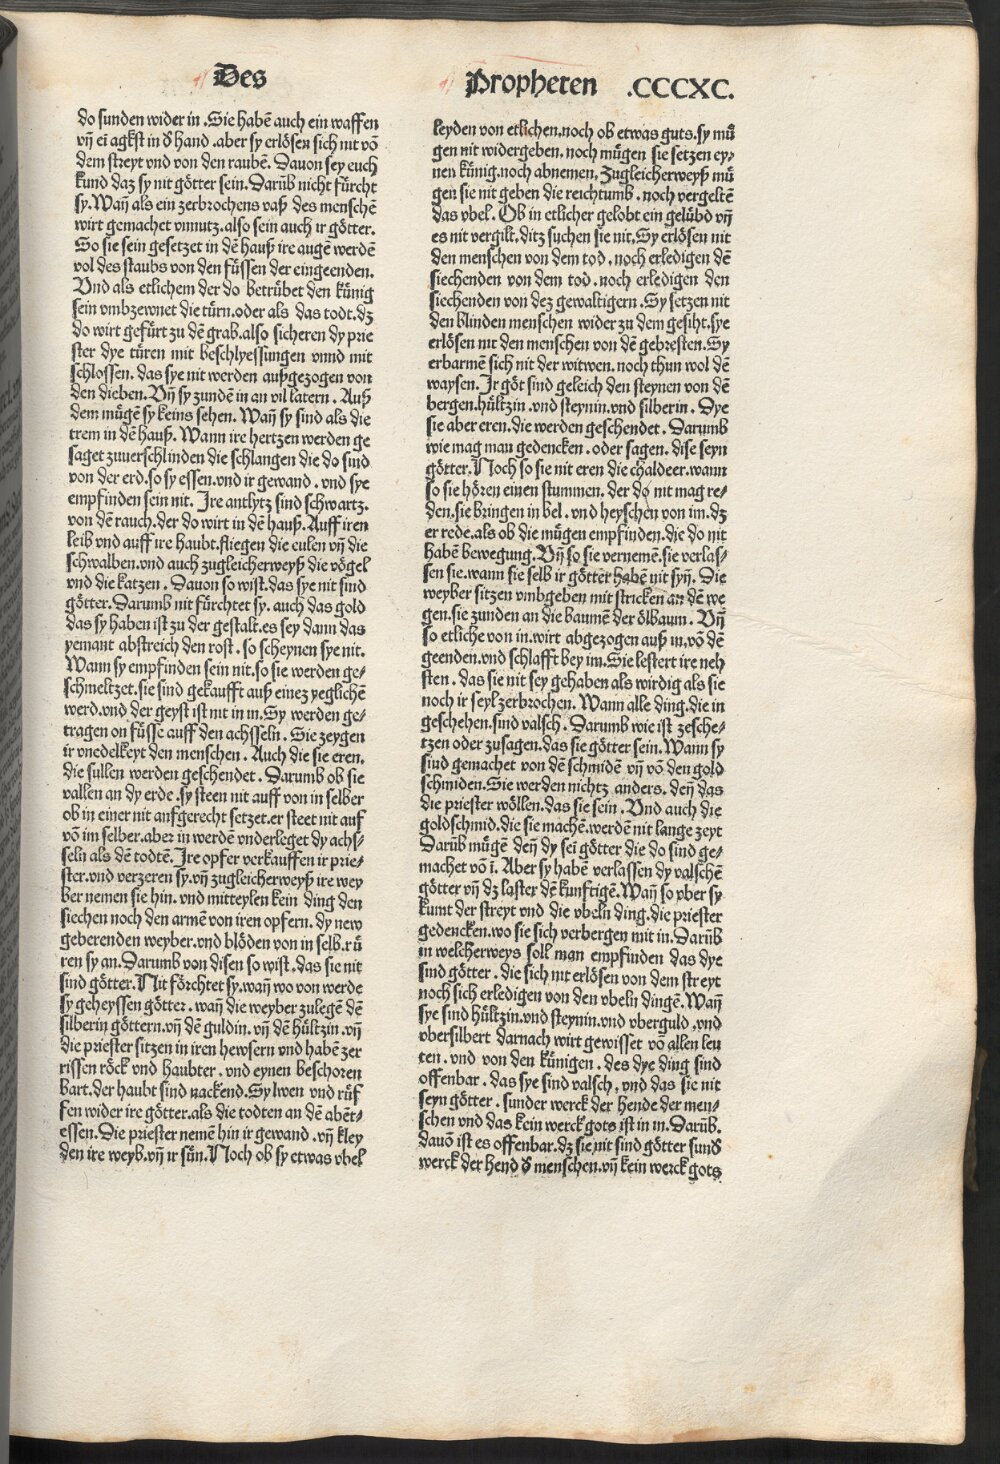 Des
Propheten .CCCXC.
do sunden wider in . Sie habē auch ein waffen
vñ eī agkst in d̕ hand . aber sy erlösen sich nit vō
dem streyt vnd von den raubē. Dauon sey euch
kund daz sy nit götter sein. Darūb nicht fürcht
sy. Wañ als ein zerbrochens vaß des menschē
wirt gemachet vnnutz. also sein auch ir götter.
So sie sein gesetzet in dē hauß ire augē werdē
vol des staubs von den füssen der eingeenden.
Vnd als etlichem der do betrübet den künig
sein vmbzewnet die türn. oder als das todt. dz
do wirt gefürt zu dē grab. also sicheren dy prie
ster dye türen mit beschlyessungen vnnd mit
schlossen. das sye nit werden außgezogen von
den dieben. Vñ sy zundē in an vil latern . Auß
dem mügē sy keins sehen. Wañ sy sind als die
trem in dē hauß. Wann ire hertzen werden ge
saget zuuerschlinden die schlangen die do sind
von der erd. so sy essen. vnd ir gewand . vnd sye
empfinden sein nit. Ire antlytz sind schwartz.
von dē rauch. der do wirt in dē hauß. Auff iren
leib vnd auff ire haubt. fliegen die eulen vñ die
schwalben. vnd auch zugleicherweyß die vögel
vnd die katzen . Dauon so wist. das sye nit sind
götter. Darumb nit fürchtet sy. auch das gold
das sy haben ist zu der gestalt. es sey dann das
yemant abstreich den rost . so scheynen sye nit.
Wann sy empfinden sein nit. so sie werden ge⸗
schmeltzet. sie sind gekaufft auß einez yeglichē
werd. vnd der geyst ist nit in in. Sy werden ge⸗
tragen on füsse auff den achsseln . Sie zeygen
ir vnedelkeyt den menschen . Auch die sie eren.
die sullen werden geschendet . Darumb ob sie
vallen an dy erde . sy steen nit auff von in selber
ob in einer nit aufgerecht setzet. er steet nit auf
vō im selber. aber in werdē vnderleget dy achs⸗
seln als dē todtē. Ire opfer verkauffen ir prie⸗
ster. vnd verzeren sy. vñ zugleicherweyß ire wey
ber nemen sie hin. vnd mitteylen kein ding den
siechen noch den armē von iren opfern. dy new
geberenden weyber. vnd blöden von in selb. rü
ren sy an. Darumb von disen so wist . das sie nit
sind götter. Nit förchtet sy. wañ wo von werde
sy geheyssen götter . wañ die weyber zulegē dē
silberin göttern. vñ dē guldin. vñ dē hültzin . vñ
die priester sitzen in iren hewsern vnd habē zer
rissen röck vnd haubter . vnd eynen beschoren
bart. der haubt sind nackend. Sy lwen vnd rüf
fen wider ire götter. als die todten an dē abēt⸗
essen. Die priester nemē hin ir gewand . vñ kley
den ire weyb. vñ ir sün. Noch ob sy etwas vbel
leyden von etlichen. noch ob etwas guts. sy mü
gen nit widergeben. noch mügen sie setzen ey⸗
nen künig. noch abnemen, Zugleicherweyß mü
gen sie nit geben die reichtumb . noch vergeltē
das vbel . Ob in etlicher gelobt ein gelübd vñ
es nit vergilt. ditz suchen sie nit. Sy erlösen nit
den menschen von dem tod . noch erledigen dē
siechenden von dem tod . noch erledigen den
siechenden von dez gewaltigern . Sy setzen nit
den blinden menschen wider zu dem gesiht. sye
erlösen nit den menschen von dē gebresten. Sy
erbarmē sich nit der witwen. noch thun wol dē
waysen. Ir göt sind geleich den steynen von dē
bergen. hültzin . vnd steynin. vnd silberin . Dye
sie aber eren. die werden geschendet . Darumb
wie mag man gedencken . oder sagen. dise seyn
götter. Noch so sie nit eren die chaldeer. wann
so sie hören einen stummen. der do nit mag re⸗
den. sie bringen in bel . vnd heyschen von im. dz
er rede. als ob die mügen empfinden. die do nit
habē bewegung. Vñ so sie vernemē. sie verlas⸗
sen sie. wann sie selb ir götter habē nit syñ. Die
weyber sitzen vmbgeben mit stricken an dē we
gen. sie zunden an die baumē der ölbaum . Vñ
so etliche von in. wirt abgezogen auß in. vō dē
geenden. vnd schlafft bey im. Sie lestert ire neh
sten . das sie nit sey gehaben als wirdig als sie
noch ir seyl zerbrochen. Wann alle ding. die in
geschehen. sind valsch . Darumb wie ist zesche⸗
tzen oder zusagen. das sie götter sein. Wann sy
sind gemachet von dē schmidē vñ vō den gold
schmiden. Sie werden nichtz anders. deñ das
die priester wöllen. das sie sein . Vnd auch die
goldschmid. die sie machē. werdē nit lange zeyt
Darūb mügē deñ dy seī götter die do sind ge⸗
machet vō ī. Aber sy habē verlassen dy valschē
götter vñ dz laster dē kunftigē. Wañ so vber sy
kumt der streyt vnd die vbeln ding. die priester
gedencken. wo sie sich verbergen mit in. Darūb
in welcherweys soll man empfinden das dye
sind götter . die sich nit erlösen von dem streyt
noch sich erledigen von den vbeln dingē. Wañ
sye sind hültzin. vnd steynin. vnd vberguld . vnd
vbersilbert darnach wirt gewisset vō allen leu
ten . vnd von den künigen . des dye ding sind
offenbar . das sye sind valsch . vnd das sie nit
seyn götter . sunder werck der hende der men⸗
schen vnd das kein werck gots ist in in. Darūb.
dauō ist es offenbar. dz sie nit sind götter sund̕
werck der hend d̕ menschen. vñ kein werck gots